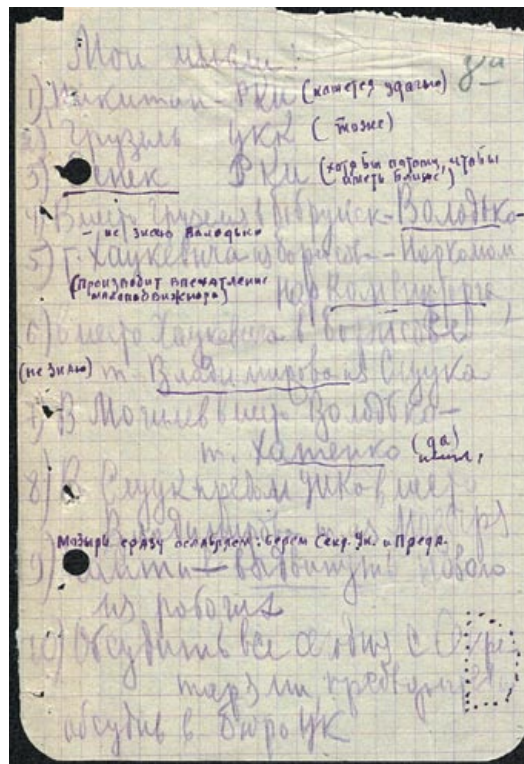 Мои мысли:
1) Никитин - РКИ (кажется удачно)
2) Грузель ЦКК (тоже)
3) Сенек РКИ (хотя бы потому, чтобы
иметь ближе)
4) Вместо Грузеля в Бобруйск - Володько
- не знаю Володько
5) т. Хацкевича из Борисова - Наркомом
(производит впечатление
малоподвижного) Наркомвнуторга,
6) вместо Хацкевича в Борисове
(не знаю) т. Владимирова из Слуцка
7) В Могилев вместо Володько -
т. Хатенко (да)
8) В Слуцк предом УИКов вместо
Владимирова т. из Мозыря
Мазырь сразу ослабляем: берем Секр. Ук. и Преда.
9) выдвинуть нового
из рабочих
10) Обсудить все с
обсудив в бюро ЦК